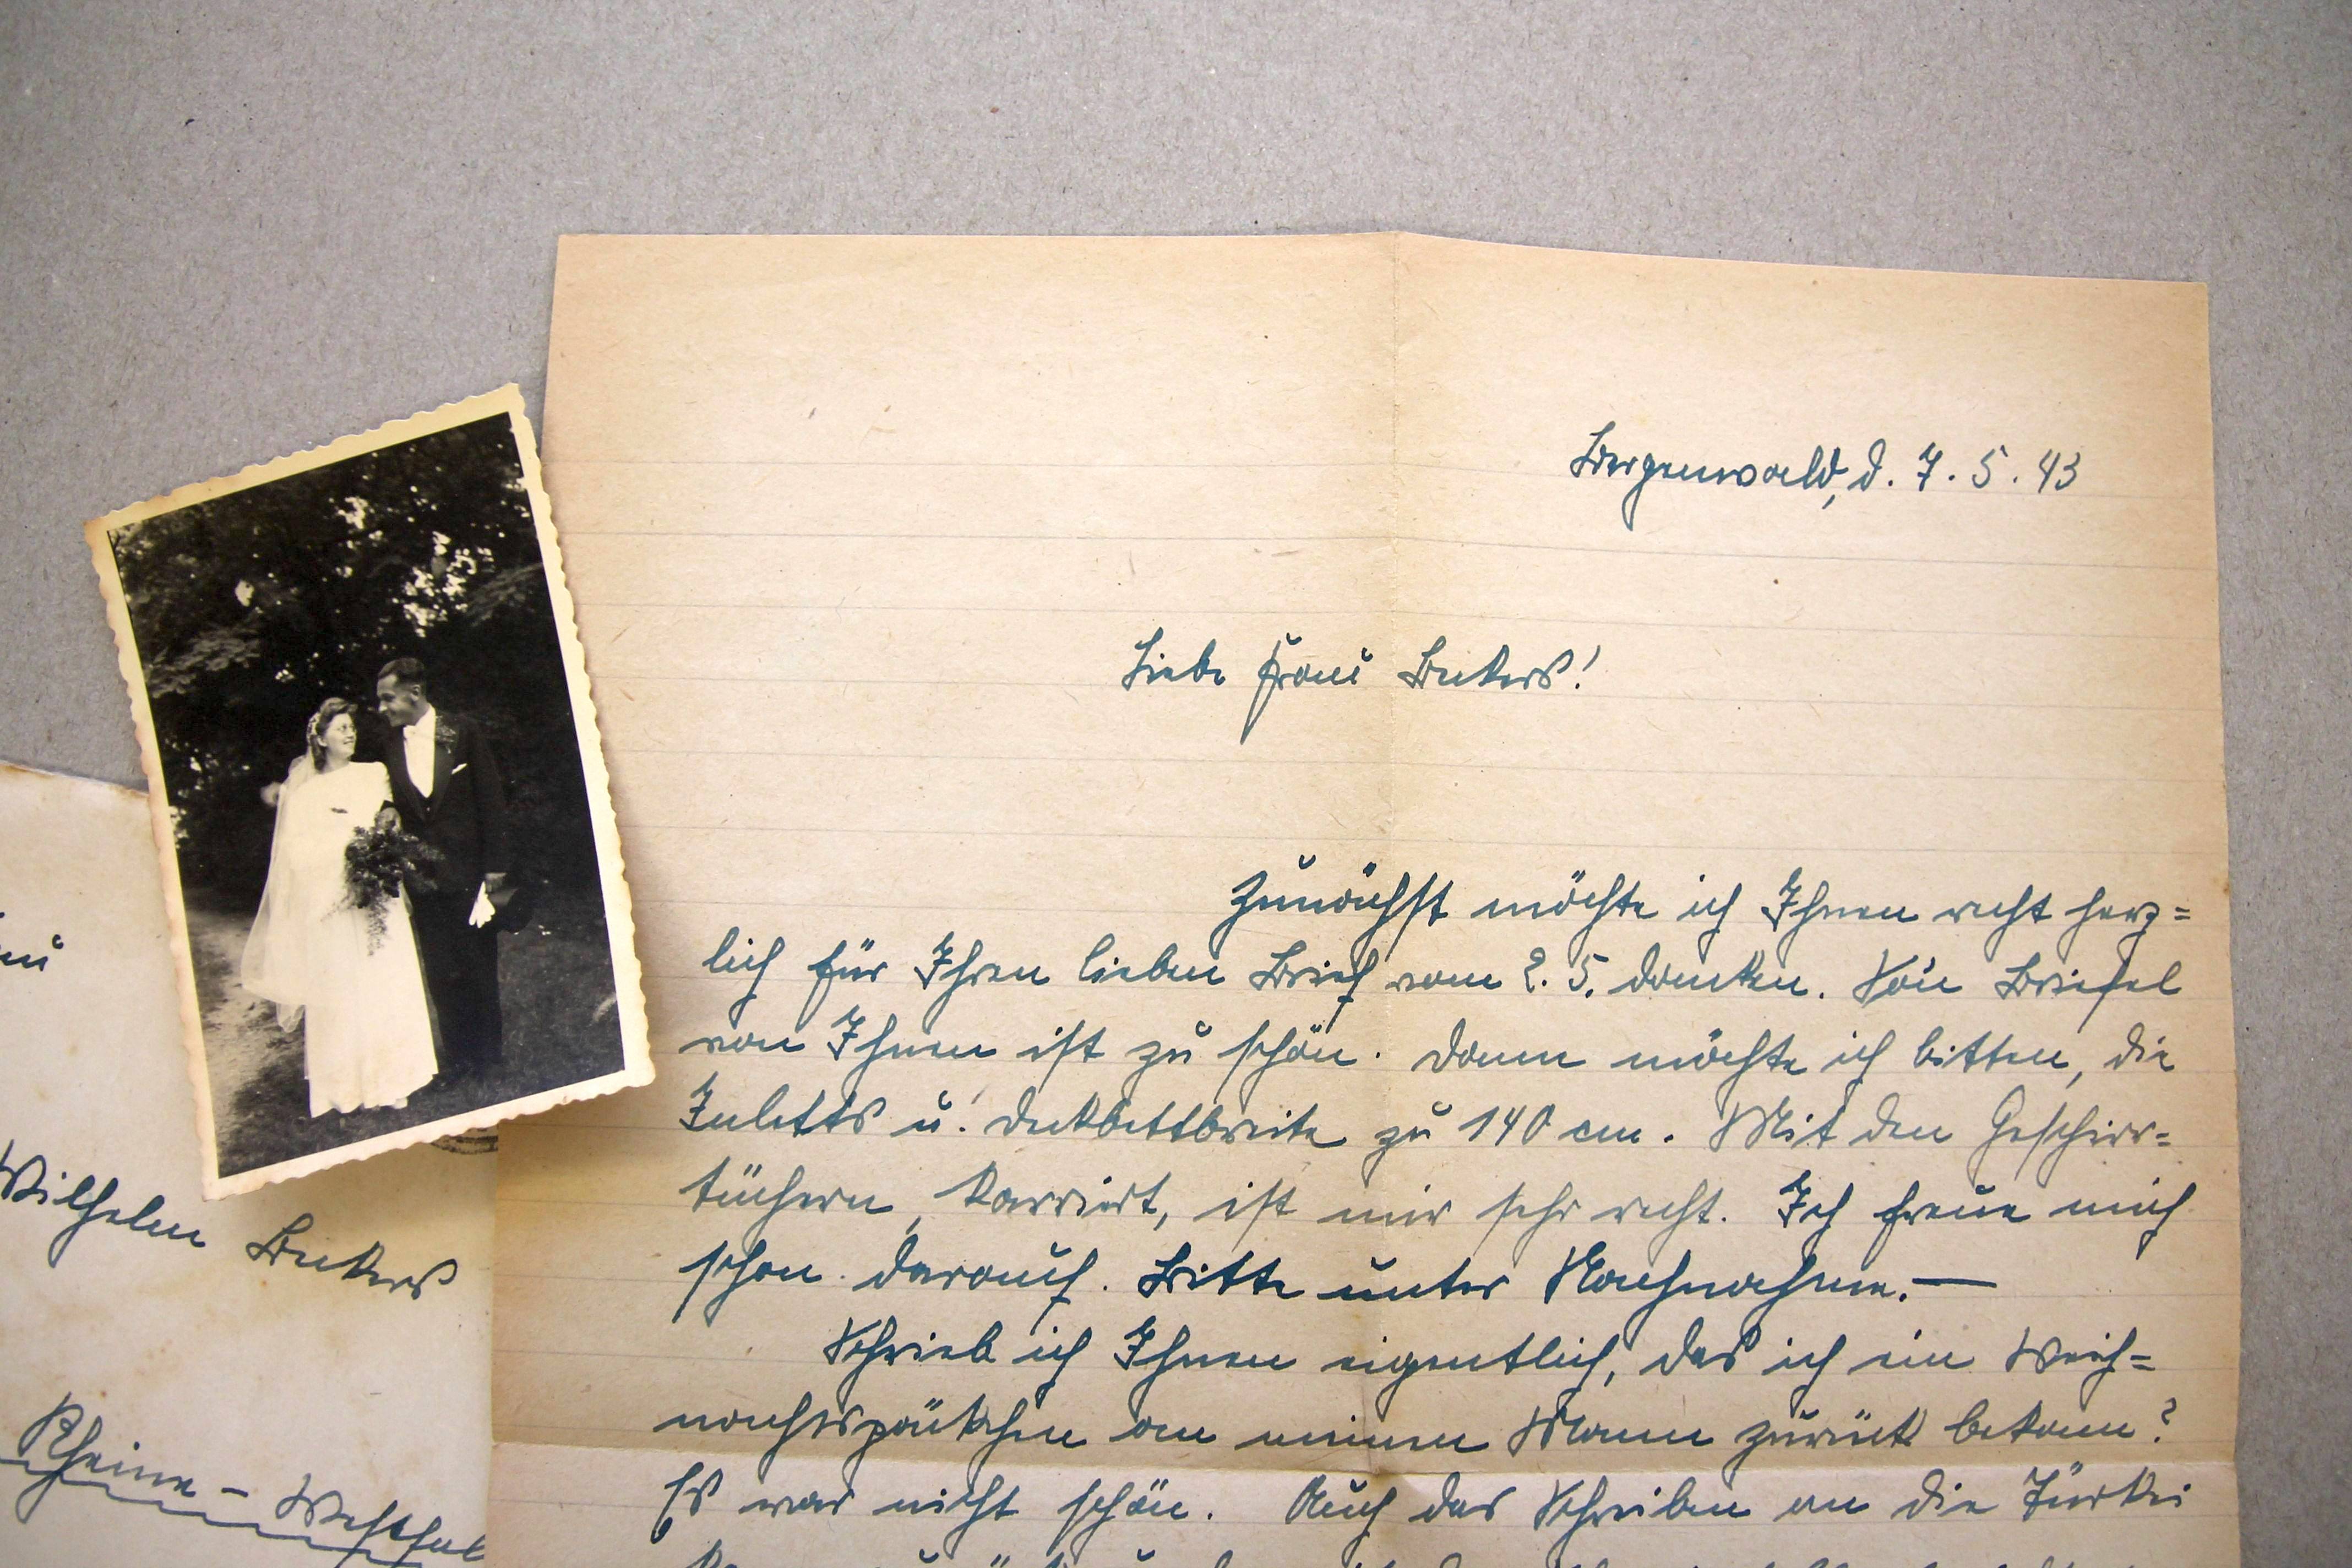 Bergenwald, d. 7. 5. 43
Liebe Frau Bukers!
Zunächst möchte ich Ihnen recht herz=
lich für Ihren lieben Brief vom 2. 5. danken. So'n Briefel
von Ihnen ist zu schön. Dann möchte ich bitten, die
Inletts u. Deckbettbreite zu 140 cm. Mit den Geschirr=
tüchern, karriert, ist mir sehr recht. Ich freue mich
schon darauf. Bitte unter Nachnahme. —
Schrieb ich Ihnen eigentlich, das ich ein Weih=
nachtspäckchen an meinen Mann zurück bekam?
Es war nicht schön. Auch das Schreiben an die Türkei
Wilhelm Bukers
Rheine - Westfal